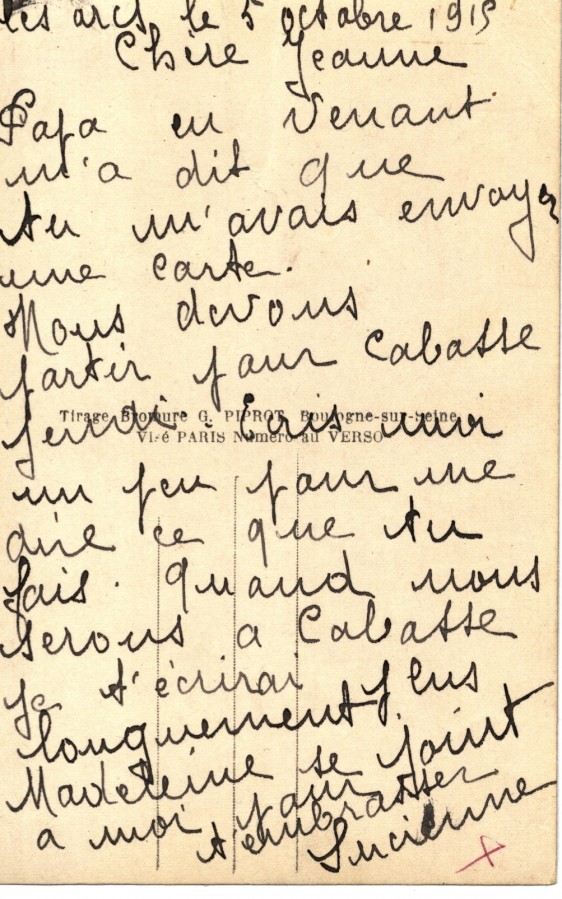 les arcs, le 5 octobre 1915
Chère Jeanne
Papa en venant
m'a dit que
tu m'avais envoyer
une carte.
Nous devons
partir pour Cabasse
Tirage Bromure G. PIPROT, Boulogne-sur-Seine
Visé PARIS Numéro au VERSO
jeudi. Ecris moi
un peu pour me
dire ce que tu
fais. Quand nous
serons a Cabasse
je t'écrirai plus
longuement.
Madeleine se joint
a moi pour
t'embrasser
Lucienne